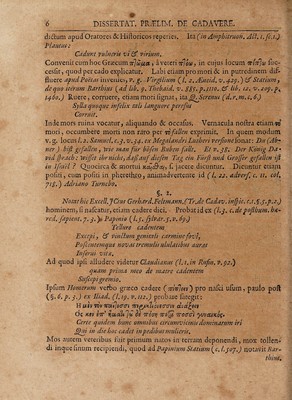 6 DISSERTAT. PRÆLIM. DE CADAVERE.
dictum apud Oratores & Historicos reperies. Ita (in Amphitruon. Act. 1. sc. 1.)
Plautus:
Cadunt vulneris vi & virium.
Convenit cum hoc Græcum à veteri in cujus locum suc-
cessit, quod per cado explicatur. Labi etiam pro mori & in putredinem dif-
fluere apud Poëtas invenies, v. g. Virgilium (l. 2. Aeneid. v. 429.) & Statium,
de quo iterum Barthius (ad lib. 9. Thebaid. v. 585. p. 1110. & lib. 12. v. 105. p.
1460.) Ruere, corruere, etiam mori signat, ita Q. Serenus (d. r. m. c. 6.)
Sylla quoque infelix tali languore peresus
Corruit.
Inde mors ruina vocatur, aliquando & occasus. Vernacula nostra etiam
mori, occumbere morti non raro per fallen exprimit. In quem modum
v. g. locum l. 2. Samuel. c. 3. v. 34. ex Megalandri Lutheri versione lustra: Du (Ab-
ner) bist gefallen, wie man für bösen Buben fällt. Et v. 38. Der König Da-
vid sprach: wisset ihr nicht, daß auf diesen Tag ein Fürst und Grosser gefallen ist
in Israel? Quocirca & mortui jacere dicuntur. Dicuntur etiam
positi, cum positi in pherethro, animadvertente id (l. 22. advers. c. 11. col,
715.) Adriano Turnebo.
§. 2.
Nosterhic Excell, JCtus Gerhard. Feltmann. (Tr. de Cadav. inspic. c. 1. §. 5. p. 2.)
hominem, si nascatur, etiam cadere dici. Probat id ex (l. 3. C. de posthum. he-
red.
Tellure cadentem
Excepi, & vinctum genitali carmine fovi,
Poscentemque novas tremulis ululatibus auras
Inserui vita.
Ad quod ipsi alludere videtur Claudianus (l. 1. in Rufin. v. 92.)
quam prima meo de matre cadentem
Suscepi gremio.
Ipsum Homerum verbo græco cadere pro nasci usum, paulo post
(§. 6. p. 3.) ex Iliad. (l. 19. v. 110.) probare satagit:
Certe quidem hunc omnibus circumvicinis dominaturum iri
Qui in die hoc cadet in pedibus mulieris.
Mos autem veteribus fuit primum natos in terram deponendi, mox tollen-
di inque sinum recipiendi, quod ad Papinium Statium (c. l. 307.) notavit Bar-
thius.